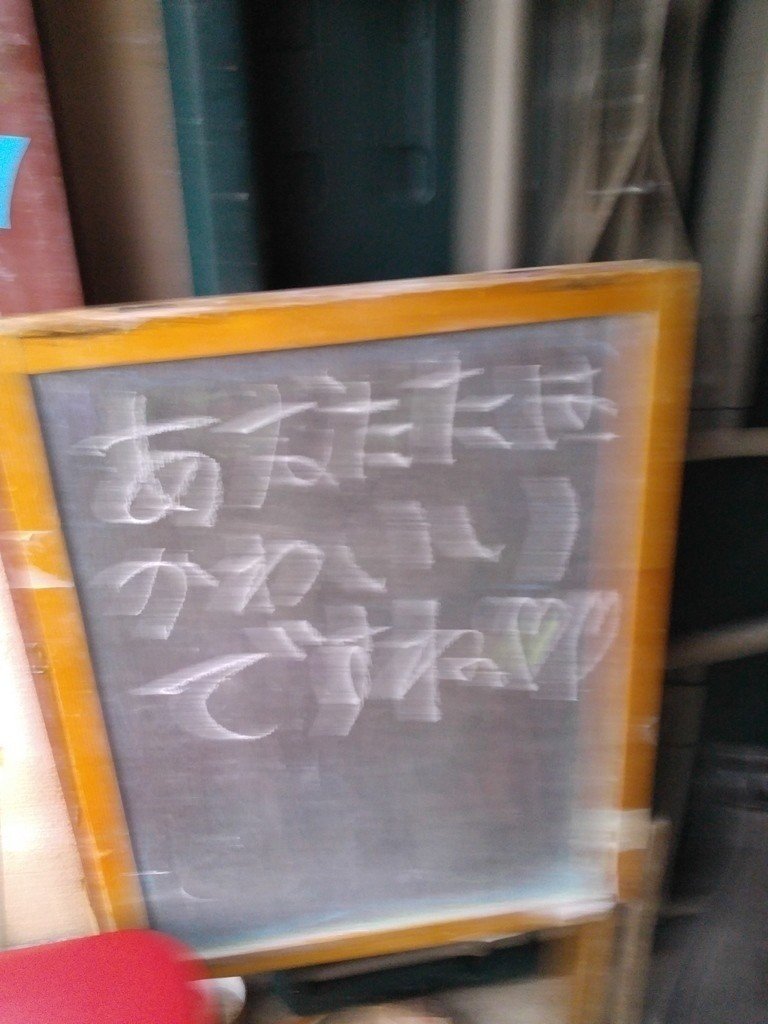 あなたは
かわいい
ですね♡♡